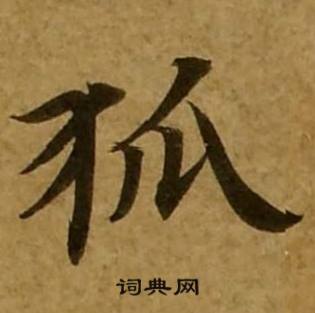 狐
词典网